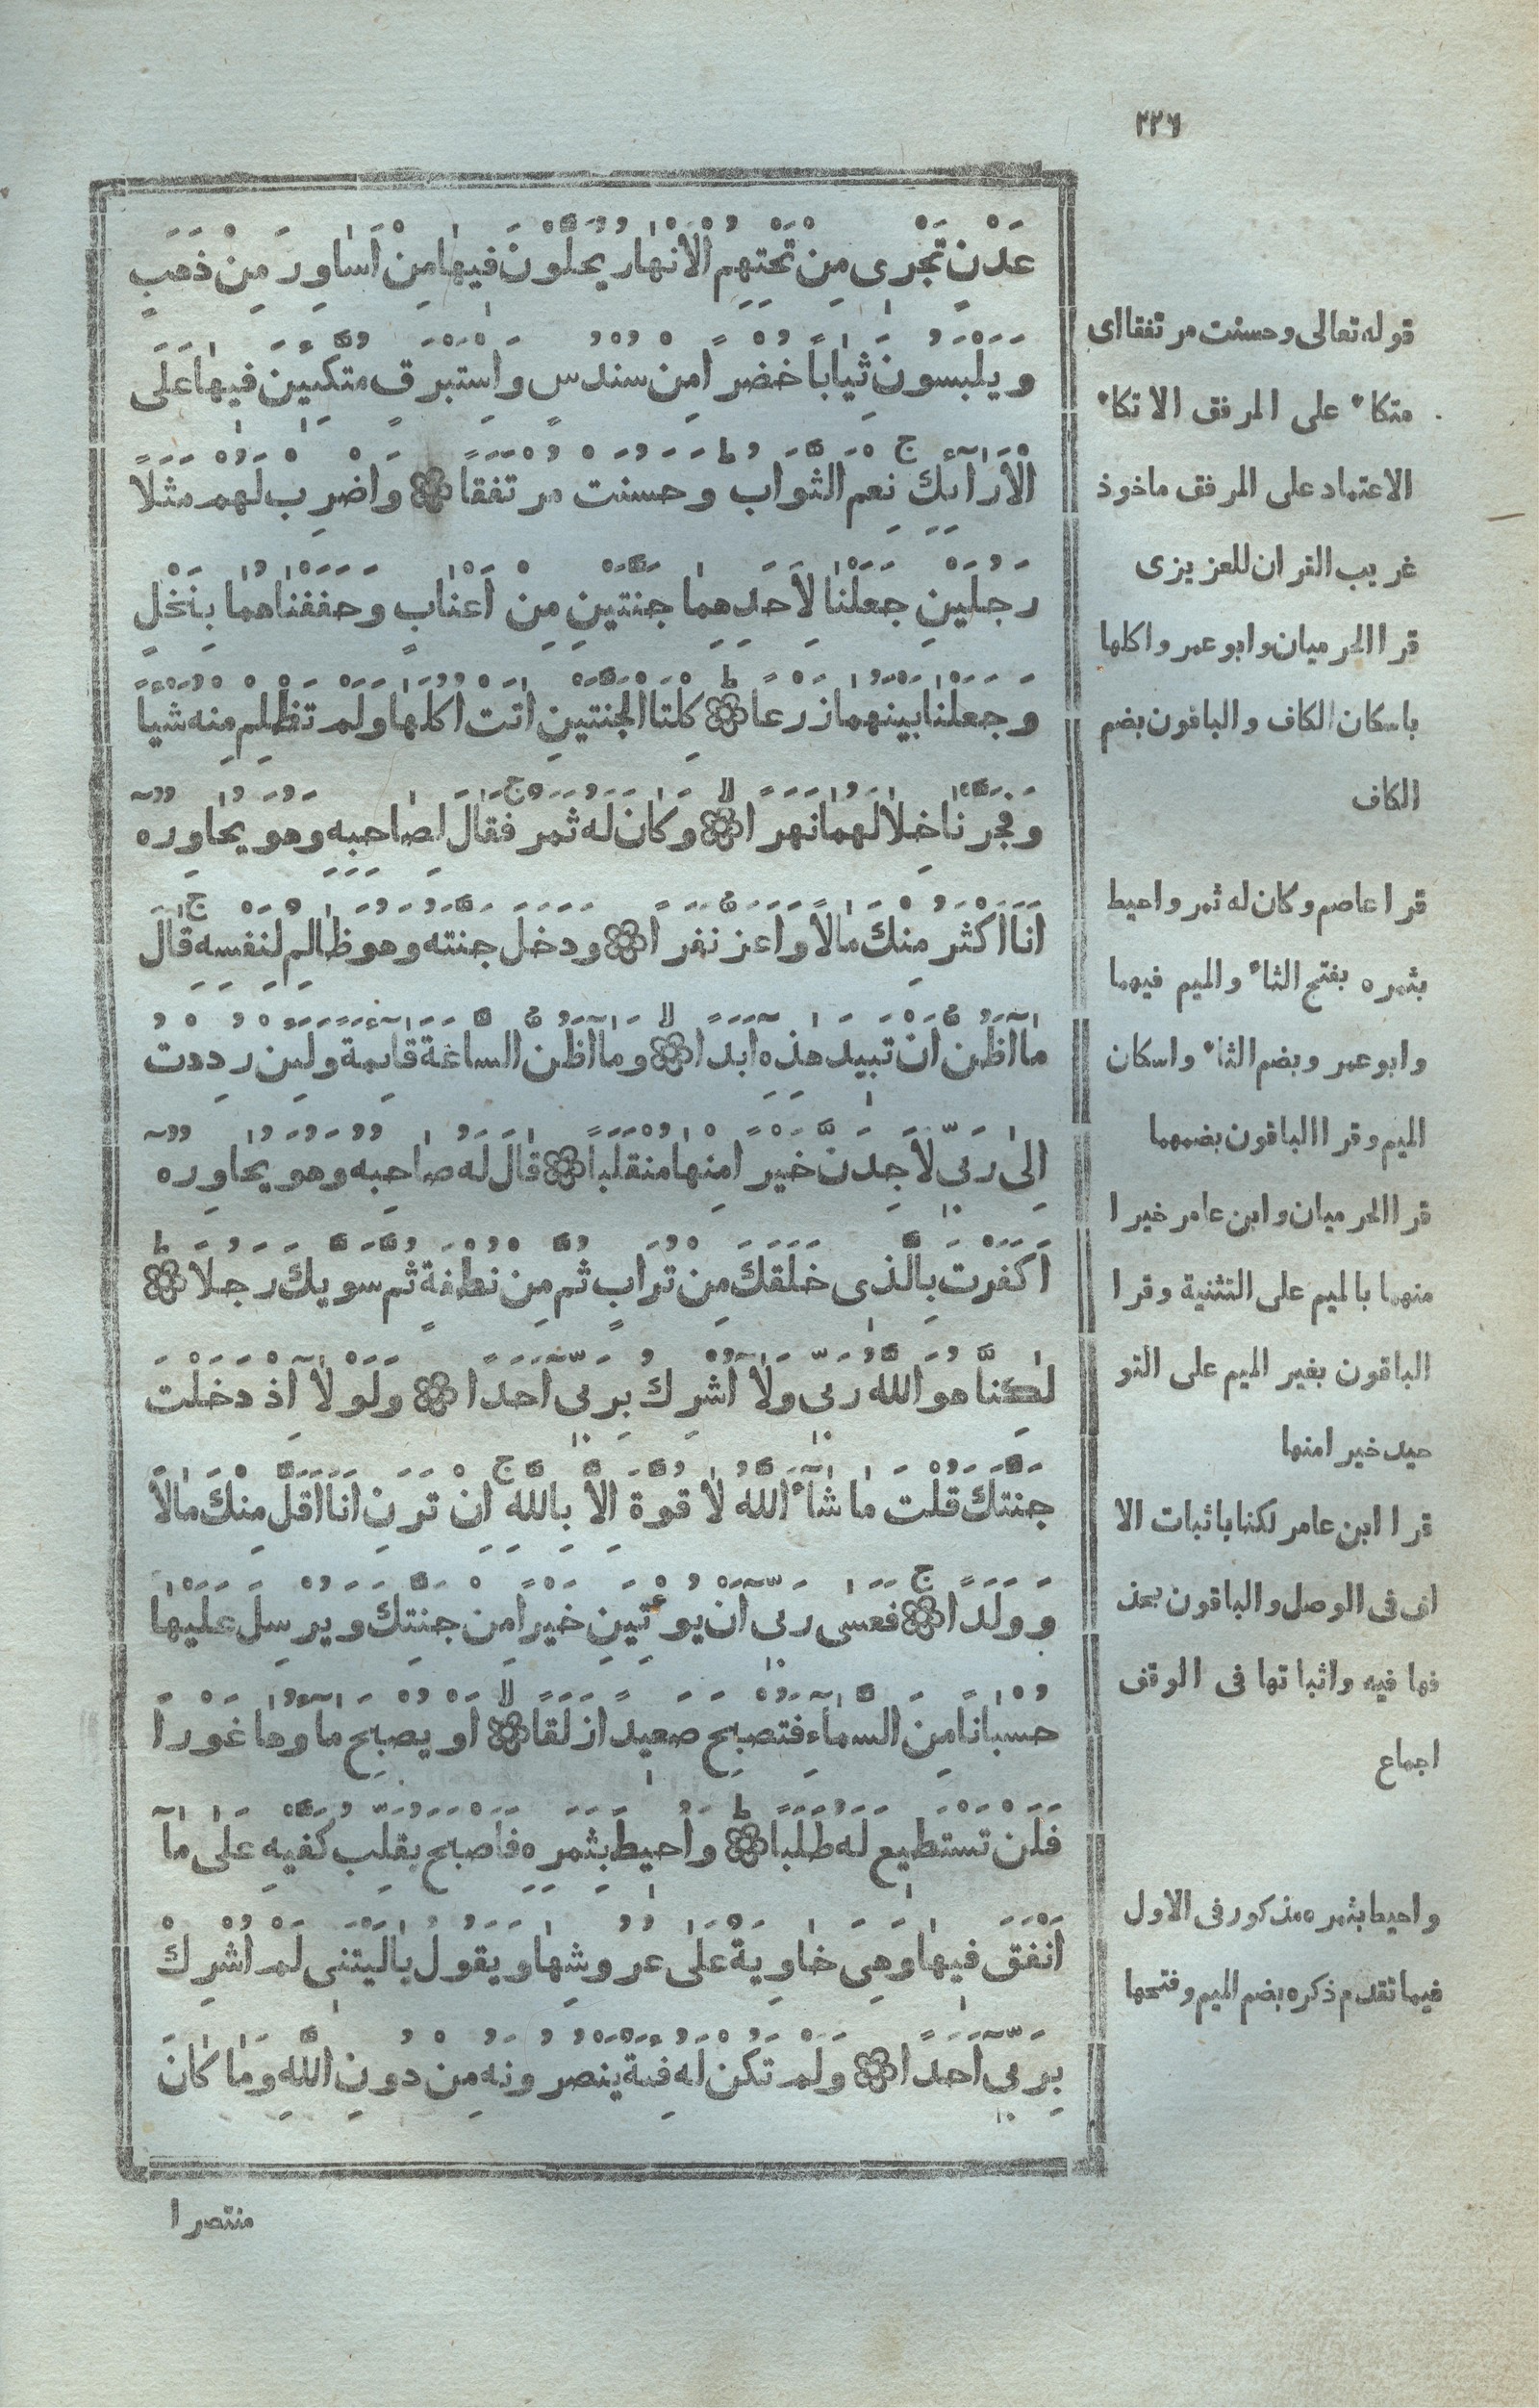 ٢٢٦
عَدْنٍ تَجْرٖى مِنْ تَحْتِهِمُ الْاَنْهٰارُ يُحَلَّوْنَ فيهٰا مِنْ اَسٰاوِرَ مِنْ ذَهَبٍ
وَيَلْبَسُونَ ثيٰاباً خُضْراً مِنْ سُنْدُسٍ وَاسْتَبْرَقٍ مُتَّكِئينَ فيهٰا عَلَى
الْاَرٰآئِكِ نِعْمَ الثَّوٰابُ وَحَسُنَتْ مُرْتَفَقاً وَاضْرِبْ لَهُمْ مَثَلاً
رَجُلَيْنِ جَعَلْنٰا لِاَحَدِهِمٰا جَنَّتَيْنِ مِنْ اَعْنٰابٍ وَحَفَفْنٰاهُمٰا بِنَخْلٍ
وَجَعَلْنٰا بَيْنَهُمٰا زَرْعاً كِلْتَا الْجَنَّتَيْنِ اٰتَتْ اُكُلَهٰا وَلَمْ تَظْلِمْ مِنْهُ شَيْأً
وَفَجَّرْنٰا خِلاٰلَهُمٰا نَهَراً وَكٰانَ لَهُ ثَمَرٌ فَقٰالَ لِصٰاحِبِهِ وَهُوَ يُحٰاوِرُهُ
اَنَا اَكْثَرُ مِنْكَ مٰالاً وَاَعَزُّ نَفَراً وَدَخَلَ جَنَّتَهُ وَهُوَ ظٰالِمٌ لِنَفْسِهِ قٰالَ
مٰا اَظُنُّ اَنْ تَبيدَ هٰذِهِ اَبَداً وَمٰا اَظُنُّ السَّاعَةَ قٰائِمَةً وَلَئِنْ رُدِدْتُ
اِلىٰ رَبّي لَاَجِدَنَّ خَيْراً مِنْهٰا مُنْقَلَباً قٰالَ لَهُ صٰاحِبُهُ وَهُوَ يُحٰاوِرُهُ
اَكَفَرْتَ بِالَّذٖى خَلَقَكَ مِنْ تُرٰابٍ ثُمَّ مِنْ نُطْفَةٍ ثُمَّ سَوّيٰكَ رَجُلاً
لٰكِنَّا هُوَ اللّٰهُ رَبّى وَلاٰ اُشْرِكُ بِرَبّى اَحَداً وَلَوْلاٰ اِذْ دَخَلْتَ
جَنَّتَكَ قُلْتَ مٰا شٰاۤءَ اللّٰهُ لاٰ قُوَّةَ اِلاَّ بِاللّٰهِ اِنْ تَرَنِ اَنَا اَقَلَّ مِنْكَ مٰالاً
وَوَلَداً فَعَسٰى رَبّى اَنْ يُؤْتِيَنِ خَيْراً مِنْ جَنَّتِكَ وَيُرْسِلَ عَلَيْهٰا
حُسْبٰاناً مِنَ السَّمٰاءِ فَتُصْبِحَ صَعيداً زَلَقاً اَوْ يُصْبِحَ مٰاؤُهٰا غَوْراً
فَلَنْ تَسْتَطيعَ لَهُ طَلَباً وَاُحيطَ بِثَمَرِهِ فَاَصْبَحَ يُقَلِّبُ كَفَّيْهِ عَلٰى مٰا
اَنْفَقَ فيهٰا وَهِيَ خٰاوِيَةٌ عَلٰى عُرُوشِهٰا وَيَقُولُ يٰا لَيْتَنى لَمْ اُشْرِكْ
بِرَبّى اَحَداً وَلَمْ تَكُنْ لَهُ فِئَةٌ يَنْصُرُونَهُ مِنْ دُونِ اللّٰهِ وَمٰا كٰانَ
منتصرا
قوله تعالى وحسنت مرتفقا اى
متكاء على المرفق الاتكاء
الاعتماد على المرفق ماخوذ
غريب القران للعزيزى
قرا الحرميان وابو عمرو اكلها
باسكان الكاف والباقون بضم
الكاف
قرا عاصم وكان له ثمر واحيط
بثمره بفتح الثاء والميم فيهما
وابو عمرو بضم الثاء واسكان
الميم وقرا الباقون بضمهما
قرا الحرميان وابن عامر خيرا
منهما بالميم على التثنية وقرا
الباقون بغير الميم على التو
حيد خيرا منها
قرا ابن عامر لكنا باثبات الا
لف فى الوصل والباقون بحذ
فها فيه واثباتها فى الوقف
اجماع
واحيط بثمره مذكور فى الاول
فيما تقدم ذكره بضم الميم وفتحها